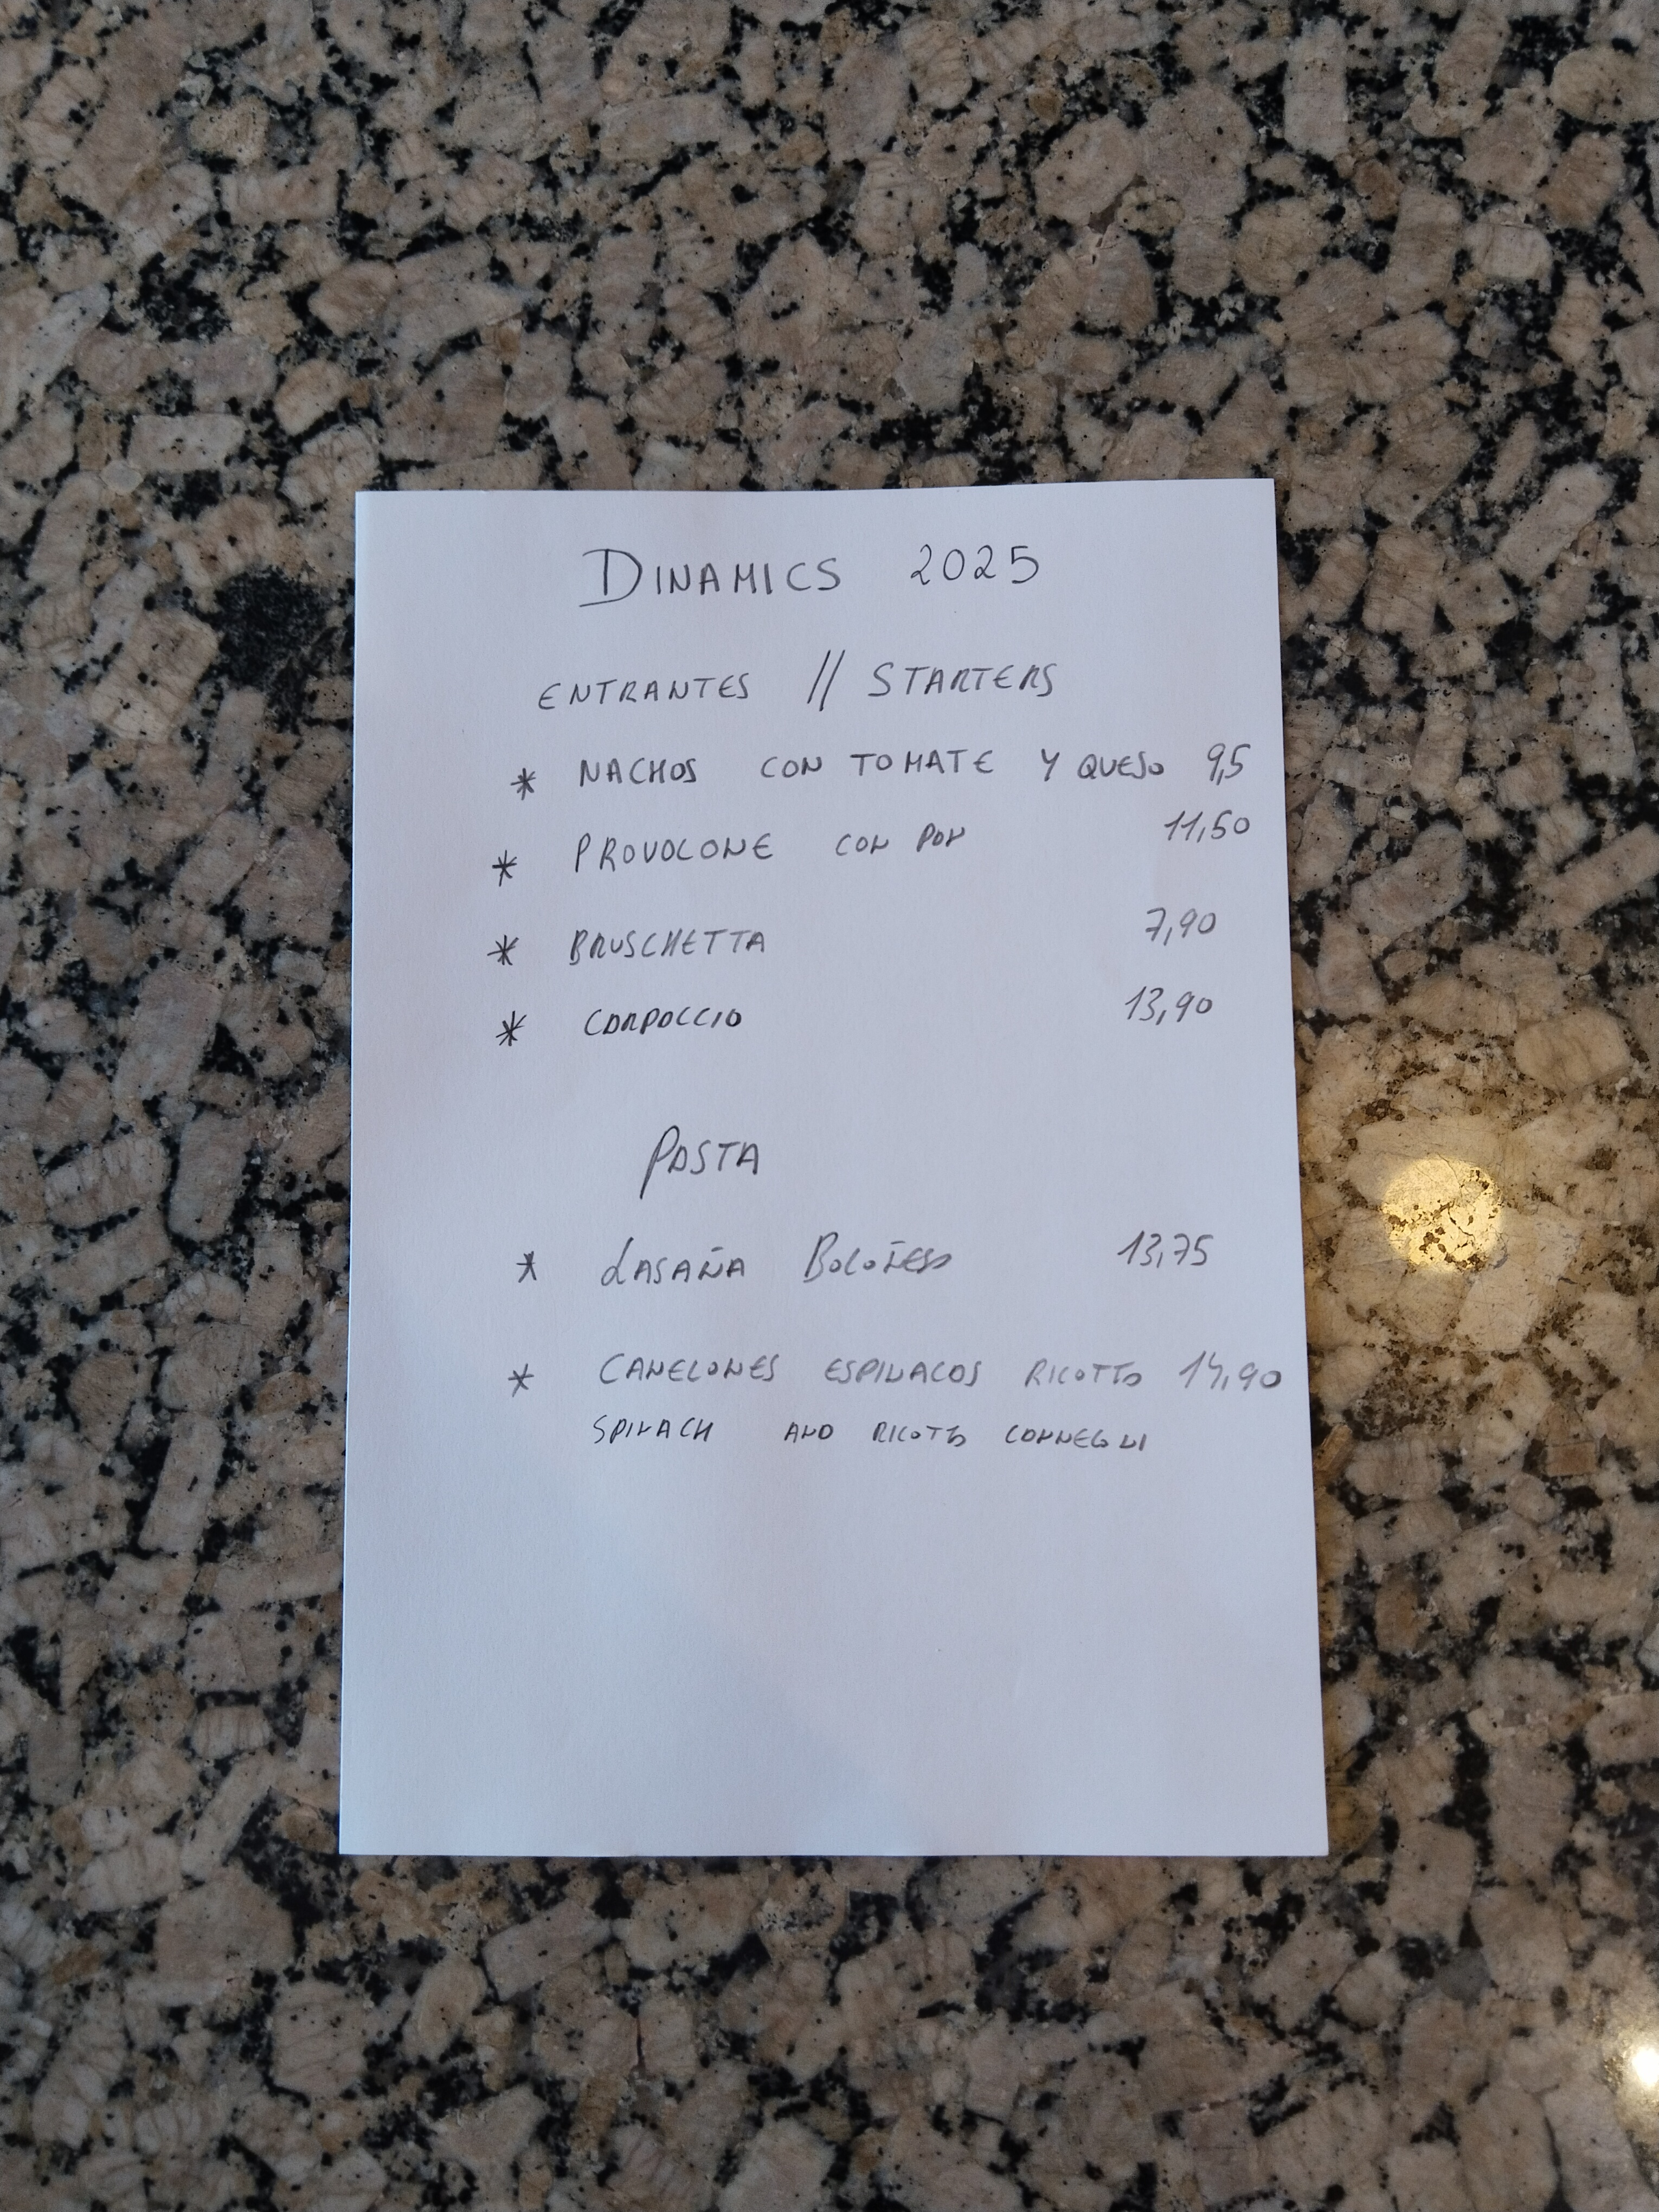 DINAMICS 2025
ENTRANTES // STARTERS
* NACHOS CON TOMATE Y QUESO 9,5
* PROVOLONE CON PAN 11,50
* BRUSCHETTA 7,90
* CARPACCIO 13,90
PASTA
* LASAÑA BOLOÑESA 13,75
* CANELONES ESPINACAS RICOTTA 14,90
SPINACH AND RICOTA CANNELONI